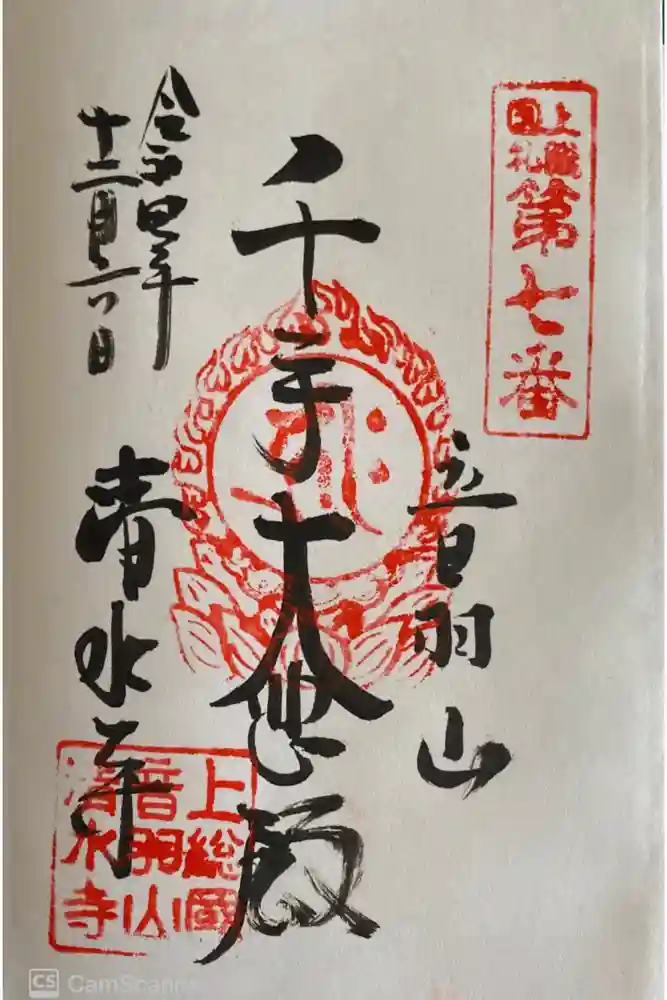 上總国札
第七番
音羽山
千手大悲殿
令和四年
十二月六日
清水寺
上総國
音羽山
清水寺
CS CamScanne